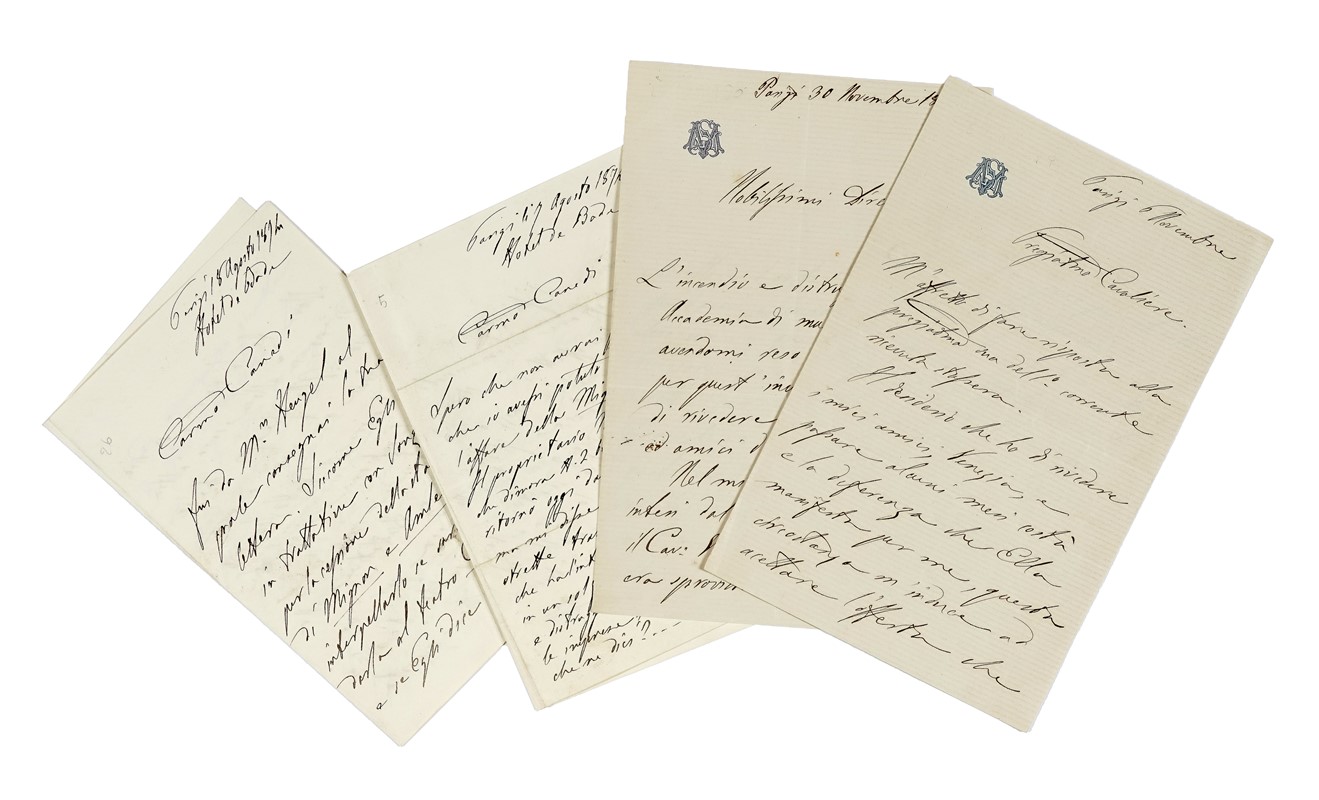 Parigi 18 Agosto 1874
Hotel de Bade
Carmo Canedi
fui da Mr. Heugel al
quale consegnai la tua
lettera. Siccome Egli
in trattative con Sonz
per la cessione della sta
di Mignon e Amle
interpellarlo se
darla al teatro
e se Egli dice
26
Parigi li 7 Agosto 187
Hotel de Bade
5
Carmo Canedi
Spero che non avrai
che io avessi potuto
l'affare della Mig
Il proprietario
la dimora N. 2
ritornò oggi da
ma mi disse
strette trat
che
in un sol
e distra
le imprese!?
che ne dici? ----
Parigi 30 Novembre 18
Nobilissimi Dire
L'incendio e distru
Accademia di mu
avendomi reso
per quest' inv
di rivedere
ed amici d
Nel m
intesi dal
il Cav:
era sprovvi
Parigi 6 Novembre
Pregiatmo Cavaliere.
M'affretto di fare risposta alla
pregiatma sua dello corrente
ricevuta stassera.
Il desiderio che ho di rividere
i miei amici Veneziani, e
passare alcuni mesi costà
e la deferenza che Ella
manifesta per me, questa
circostanza m'induce ad
accettare l'offerta che